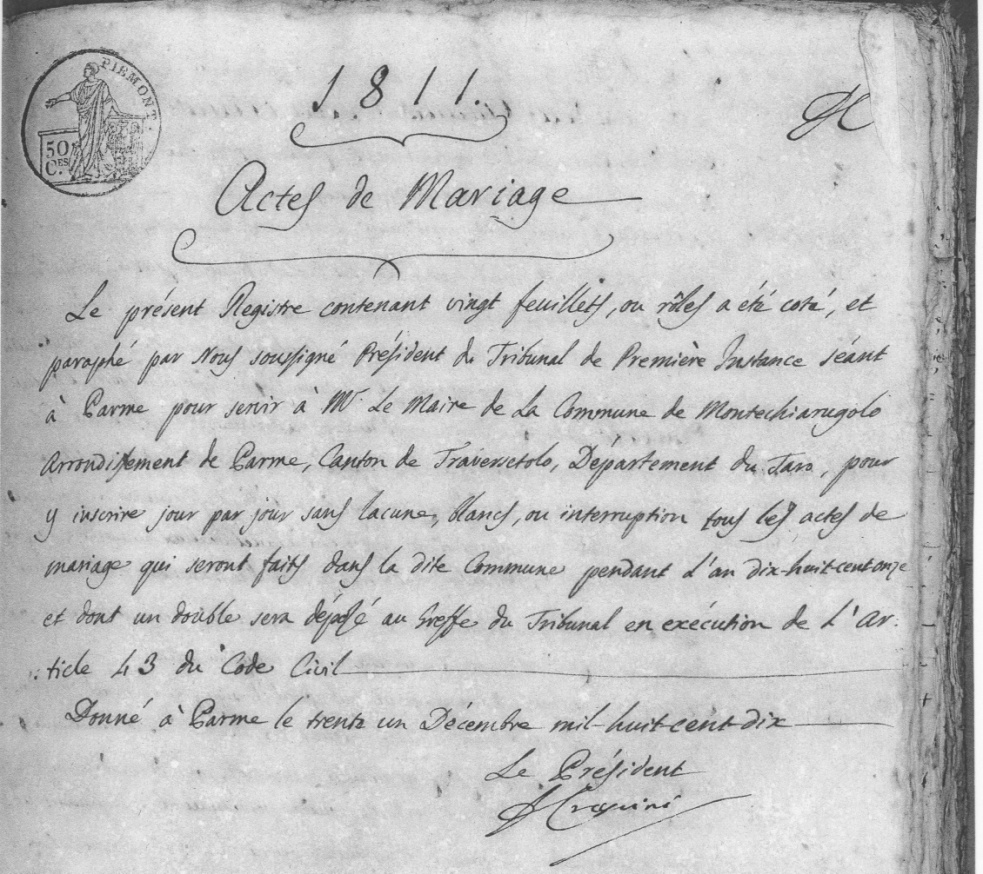 PIEMONT.
50
CES
C.
1811.
Actes de Mariage
Le présent Registre contenant vingt feuillets, ou rôles a été coté, et
paraphé par Nous soussigné Président du Tribunal de Première Instance séant
à Parme pour servir à Mr. Le Maire de La Commune de Montechiarugolo
Arrondissement de Parme, Canton de Traversetolo, Département du Taro, pour
y inscrire jour par jour sans lacune, blancs, ou interruption tous les actes de
mariage qui seront faits dans la dite Commune pendant L'an dix-huit-cent onze
et dont un double sera déposé au Greffe du Tribunal en exécution de L'Ar:
:ticle 43 du Code Civil
Donné à Parme le trente un Décembre mil-huit-cent-dix
Le Président